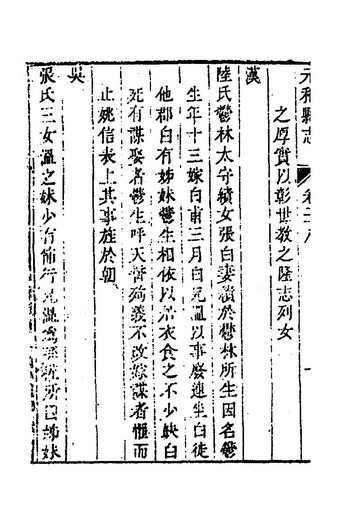 元和縣志 卷二八
之厚實以彰世教之隆志列女
漢
陸氏鬱林太守績女張白妻績於鬱林所生因名鬱
生年十三嫁白甫三月白兄溫以事廢連坐白徙
他郡白有姊妹鬱生相依以居衣食之不少缺白
死有謀娶者鬱生呼天誓殉義不改嫁謀者懼而
止姚信表上其事旌於朝
吳
張氏三女溫之妹少有節行兄溫為孫所姊妹